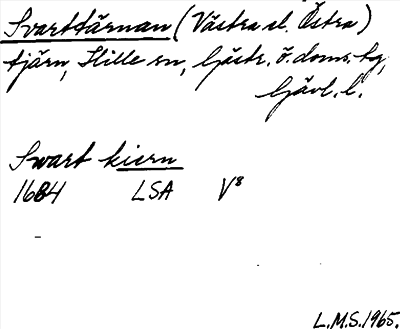 Svarttärnan (Västra el. Östra)
tjärn, Hille sn, Gästr. ö. doms. hg,
Gävl. l.
Swart kiern
1684 LSA V8
L.M.S. 1965.